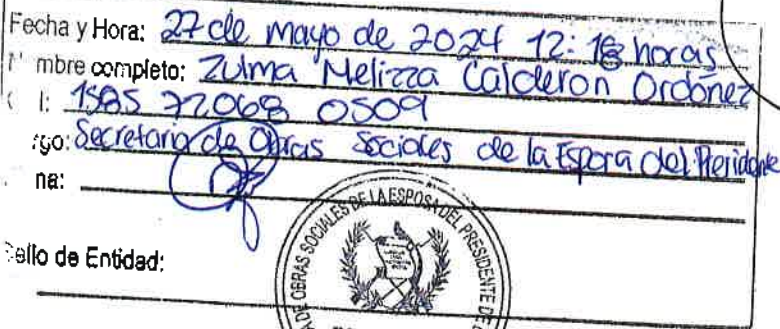 Fecha y Hora: 27 de mayo de 2024 12:18 horas
mbre completo: Zulma Melizza Calderon Ordóñez
I: 1585 77068 0509
go: Secretaria de Obras Sociales de la Esposa del Presidente
na:
Sello de Entidad:
DE OBRAS SOCIALES DE LA ESPOSA DEL PRESIDENTE DE